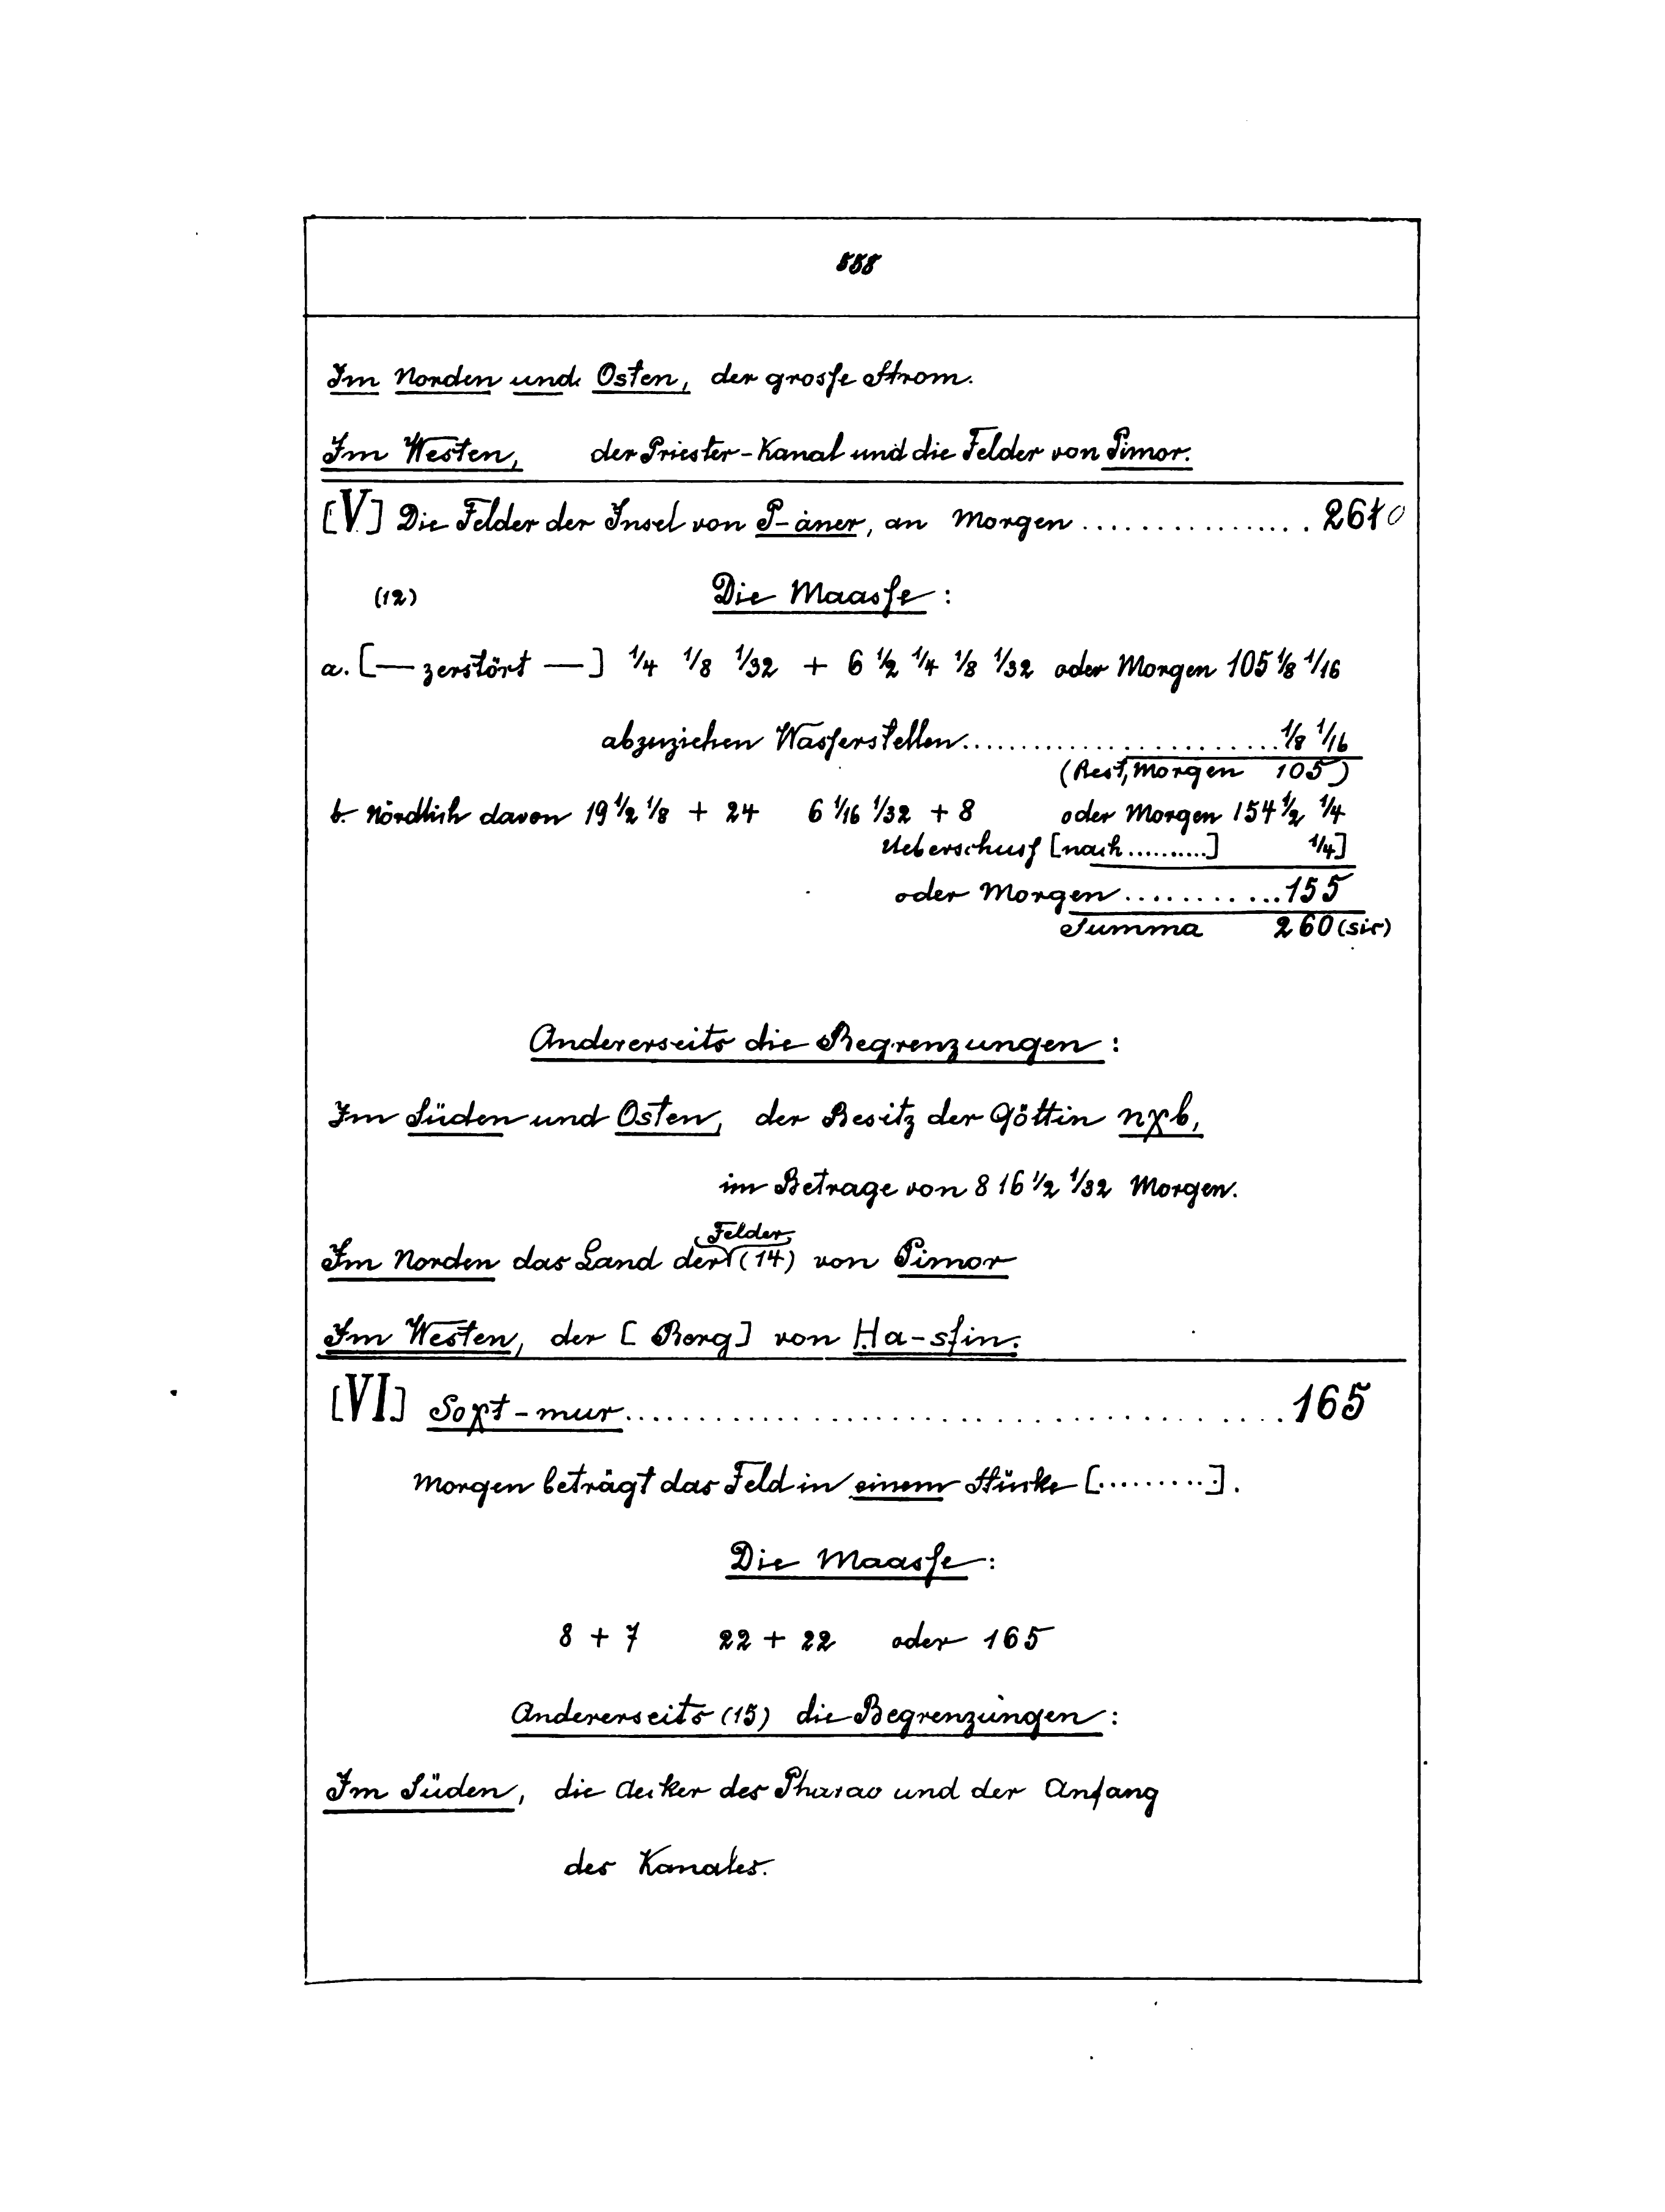 558
Im Norden und Osten, der grosse Strom.
Im Westen, der Priester-Kanal und die Felder von Pimor.
[V] Die Felder der Insel von P-àner, an Morgen ................ 2610
(12) Die Maasse :
a. [— zerstört —] 1/4 1/8 1/32 + 6 1/2 1/4 1/8 1/32 oder Morgen 105 1/8 1/16
abzuziehen Wasserstellen........................ 1/8 1/16
(Rest, Morgen 105)
b. Nördlich davon 19 1/2 1/8 + 24 6 1/16 1/32 + 8 oder Morgen 154 1/2 1/4
Ueberschuss [nach..........] 1/4]
oder Morgen............155
Summa 260 (sic)
Andererseits die Begrenzungen :
Im Süden und Osten, der Besitz der Göttin nχb,
im Betrage von 816 1/2 1/32 Morgen.
Felder
Im Norden das Land der (14) von Pimor
Im Westen, der [Berg] von Ḥa-sfin.
[VI] Soχt-mur............................................165
Morgen beträgt das Feld in einem Stücke [.........].
Die Maasse :
8 + 7 22 + 22 oder 165
Andererseits (15) die Begrenzungen :
Im Süden, die Aecker des Pharao und der Anfang
des Kanales.